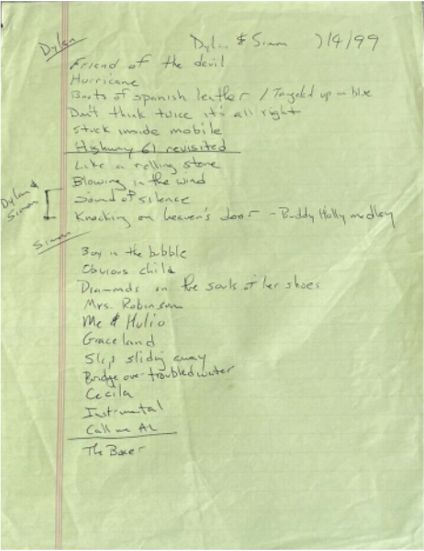 Dylan
Dylan & Simon 7/4/99
Friend of the devil
Hurricane
Boots of spanish leather / Tangled up in blue
Don't think twice it's all right
Stuck inside mobile
Highway 61 revisited
Like a rolling stone
Blowing in the wind
Dylan & Simon
Sound of silence
Knocking on heaven's door - Buddy Holly medley
Simon
Boy in the bubble
Obvious child
Diamonds on the souls of her shoes
Mrs. Robinson
Me & Hulio
Graceland
Slip sliding away
Bridge over troubled water
Cecila
Instrumental
Call me AL
The Boxer